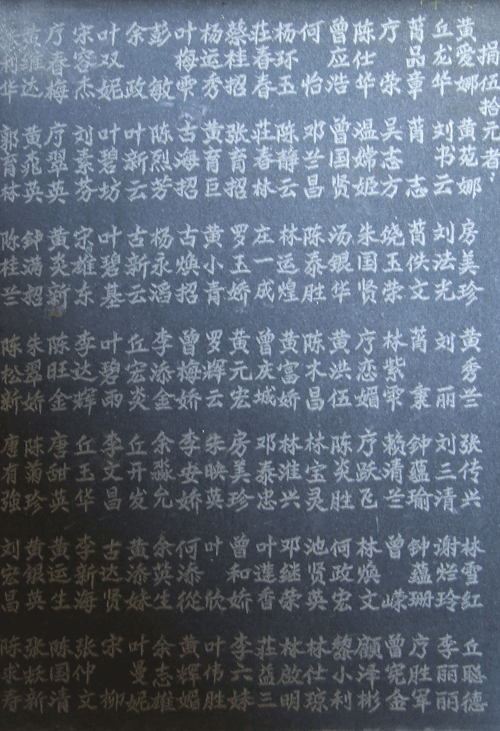 捐伍拾元者
黄爱娜 黄苑娜 房美珍 黄秀兰 张传兴 林雪红 丘聪德
丘龙华 刘书云 刘法光 刘丽 刘三清 谢烂玲 李丽丽
品章 志 文 秉 钟蕴瑜 钟蕴珊 序胜军
序荣 吴志方 饶玉荣 林紫雫 赖清兰 曾嵘 曾宪金
陈仕华 温嫦姫 朱国贤 序恋媚 序跃飞 林焕文 顾泽彬
曾应浩 曾国贤 汤银华 黄洪伍 陈炎胜 何政宏 黎小利
何怡 邓兰昌 陈泰胜 陈木昌 林宝灵 池贤英 林仕琼
杨环玉 陈静云 林运煌 黄富娇 林淮兴 邓继荣 林啟明
莊春春 莊春林 庄一成 曾庆城 邓泰忠 叶莲香 莊益三
蔡桂招 张育招 罗玉娇 黄元宏 房美珍 曾和娇 李六妹
杨运秀 黄育巨 黄小青 罗辉云 朱映英 叶欣 叶伟胜
叶梅雫 古海招 古焕招 曾梅娇 李安娇 何添從 黄辉媚
彭敏 陈烈芳 杨永滔 李添金 余淼允 余英生 余志雄
余政 叶新云 古新云 丘宏炎 丘开发 黄添妹 叶曼妮
叶双妮 叶碧坊 叶碧基 叶碧雨 李文昌 古达贤 宋柳
宋容杰 刘素芬 宋雄东 李达辉 丘玉华 李新海 张仲文
序春梅 序翠英 黄炎新 陈旺金 唐甜英 黄运生 陈国清
黄维达 黄英 钟满招 朱翠娇 陈菊珍 黄银英 张新
华 郭育林 陈桂兰 陈松新 唐有強 刘宏昌 陈求寿